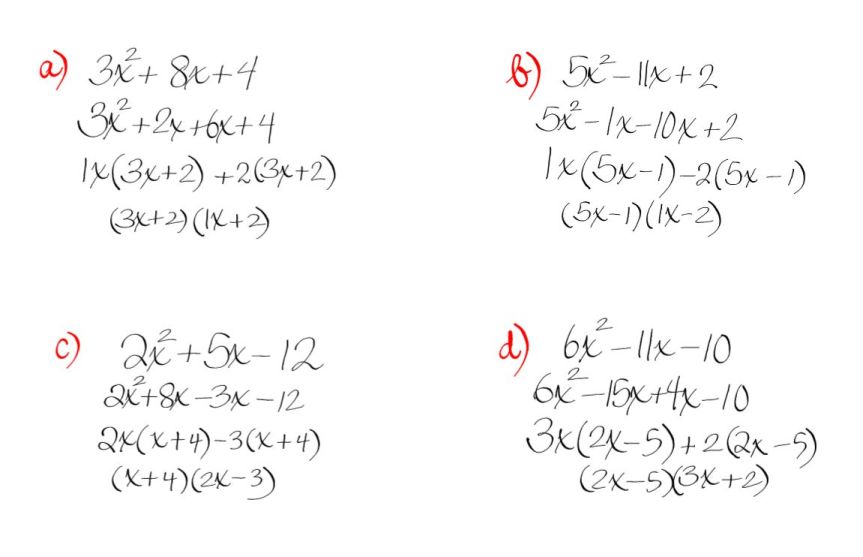 a) 3x² + 8x + 4
3x² + 2x + 6x + 4
1x(3x+2) + 2(3x+2)
(3x+2)(1x+2)
b) 5x² - 11x + 2
5x² - 1x - 10x + 2
1x(5x-1) - 2(5x-1)
(5x-1)(1x-2)
c) 2x² + 5x - 12
2x² + 8x - 3x - 12
2x(x+4) - 3(x+4)
(x+4)(2x-3)
d) 6x² - 11x - 10
6x² - 15x + 4x - 10
3x(2x-5) + 2(2x-5)
(2x-5)(3x+2)